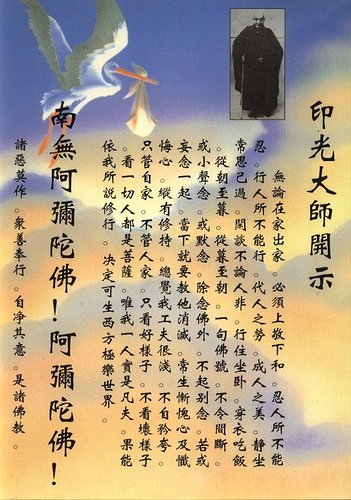 印光大師開示
無論在家出家。必須上敬下和。忍人所不能
忍。行人所不能行。代人之勞。成人之美。靜坐
常思己過。閑談不論人非。行住坐卧。穿衣吃飯
。從朝至暮。從暮至朝。一句佛號。不令間斷。
或小聲念。或默念。除念佛外。不起别念。若或
妄念一起。當下就要教他消滅。常生慚愧心及懺
悔心。縱有修持。總覺我工夫很淺。不自矜夸。
只管自家。不管人家。只看好樣子。不看壞樣子
。看一切人都是菩薩。唯我一人實是凡夫。果能
依我所說修行。決定可生西方極樂世界。
南無阿彌陀佛！阿彌陀佛！
諸惡莫作。衆善奉行。自净其意。是諸佛教。